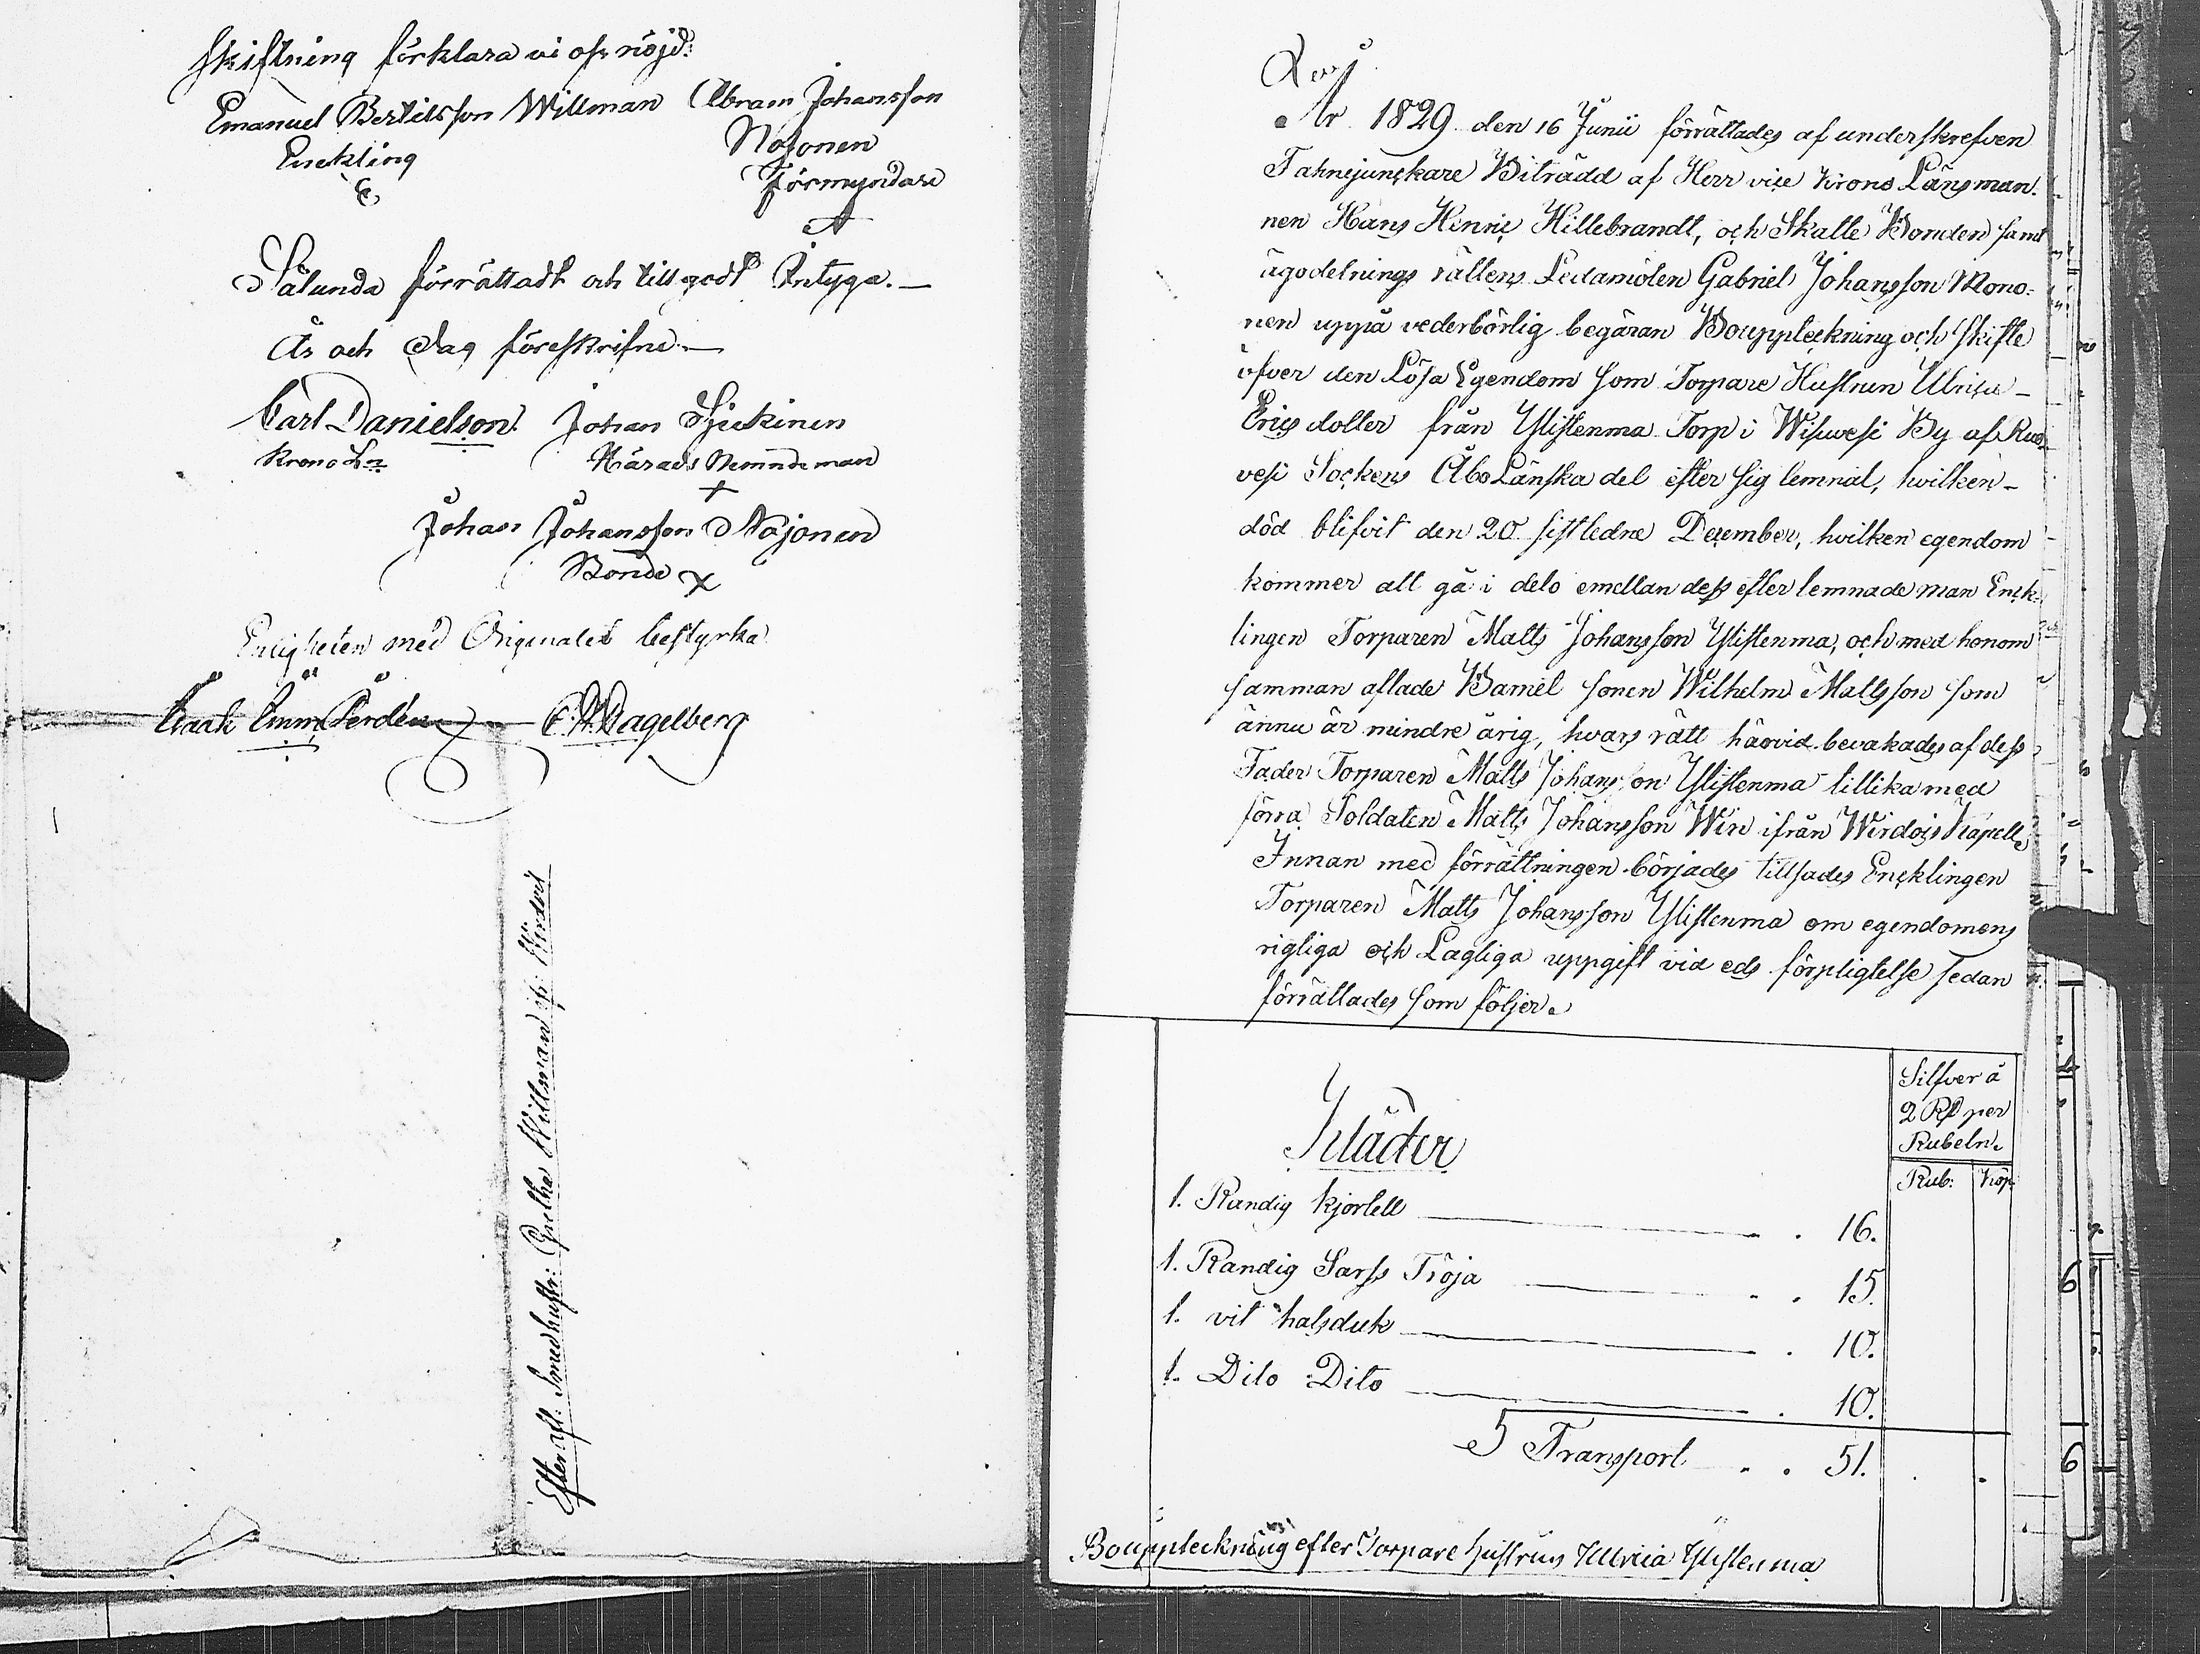 skiftning förklara vi oss nöjd:
Emanuel Bertilsson Willman
Enckling
E,
Abram Johansson
Nojonen
Förmyndare
A
Sålunda förrättadt och till godt Intyga. —
År och Dag föreskrifne. —
Carl Danielson
Krono Ln
Johan
Härads Nemndeman
+
Johan Johansson Nojonen
Bonde x
Enligheten med Originalet bestyrka
Isaak Emm: Ferdén
Hagelberg
Efter afl: Smedhustr: Gretha Willman ifr: Wirdois
År 1829 den 16 Junii förrättades af underskrefven
Fahnejunckare Biträdd af Herr vice Krono Länsman-
nen Hans Henric Hillebrandt, och Skatte Bonden samt
ägodelnings rättens Ledamöten Gabriel Johansson Mono-
nen uppå vederbörlig begäran Bouppteckning och skifte
öfver den Lösa Egendom som Torpare Hustrun Ulrica
Erics dotter från Ylistenma Torp i Wisuvesi By af Ruo-
vesi Sockens Åbo Länska del efter sig lemnat, hvilken
död blifvit den 20 sistledne December, hvilken egendom
kommer att gå i delo emellan dess efter lemnade man Enck-
lingen Torparen Matts Johansson Ylistenma, och med honom
samman aflade Barnet sonen Wilhelm Mattsson som
ännu är mindre årig, hvars rätt härvid bevakades af dess
Fader Torparen Matts Johansson Ylistenma tillika med
förra Soldaten Matts Johansson Wirn ifrån Wirdois Kapell,
Innan med förrättningen börjades tillsades Encklingen
Torparen Matts Johansson Ylistenma om egendomens
rigtiga och Lagliga uppgift vid eds förpligtelse sedan
förrättades som följer.
Silfver á
2 Rd per
Rubeln.
Rub: Kop:
Kläder
1. Randig kjortell — . 16.
1. Randig Sarss Tröja — . . 15.
1. vit halsduk — . 10.
1. Dito Dito — . 10.
Transport . . 51.
Bouppteckning efter Torpare hustrun Ulrica Ylistenma
6
6